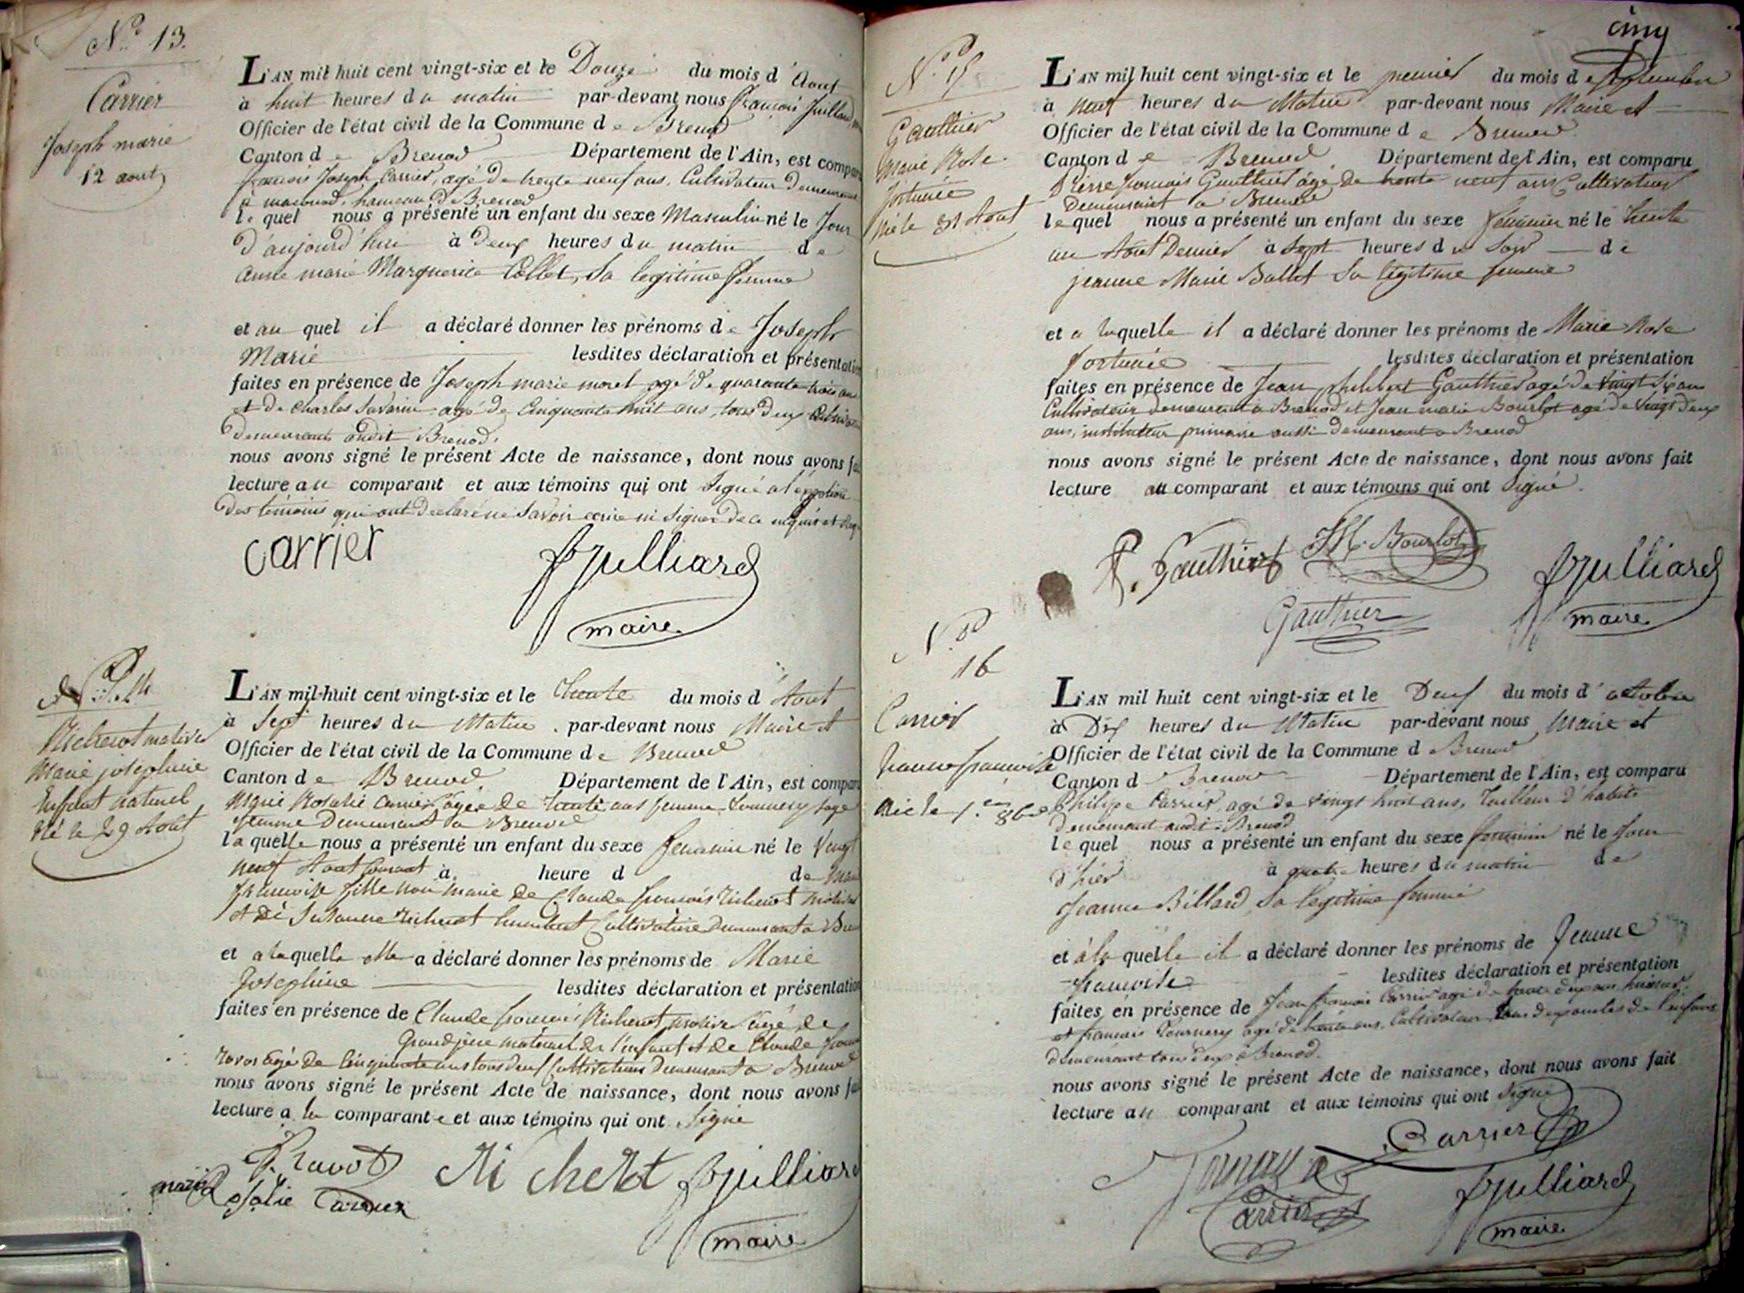 N.º 13.
Carrier
Joseph marie
12 aout
L'AN mil huit cent vingt-six et le Douze du mois d'Aout
à huit heures du matin par-devant nous françois Juillard
Officier de l'état civil de la Commune de Brenod
Canton de Brenod Département de l'Ain, est compar
françois Joseph Carrier, agé de trente neuf ans, Cultivateur Demeurant
à maconod, hameau de Brenod
le quel nous a présenté un enfant du sexe Masculin né le Jour
d'aujourd'hui à Deux heures du matin de
anne marie Marguerite Collet, sa legitime femme
et au quel il a déclaré donner les prénoms de Joseph
Marie lesdites déclaration et présentation
faites en présence de Joseph marie morel agé de quarante trois ans
et de charles Savarin agé de Cinquante huit ans, tous deux
Demeurants audit Brenod,
nous avons signé le présent Acte de naissance, dont nous avons fai
lecture au comparant et aux témoins qui ont Signé a l'exeption
des témoins qui ont declaré ne savoir ecrire ni signer de ce requis et
carrier
fJuilliard
maire
N.º 14
Richerot
Marie josephine
Enfant naturel
Né le 29 Aout
L'AN mil-huit cent vingt-six et le Trente du mois d'Aout
à Sept heures du Matin par-devant nous Maire et
Officier de l'état civil de la Commune de Brenod
Canton de Brenod Département de l'Ain, est compar
Marie Rosalie Carrier agée de trente ans femme Tournery sage
femme Demeurant a Brenod
laquelle nous a présenté un enfant du sexe feminin né le Vingt
neuf Aout courant à heure d de
françoise fille non marié de Claude françois Richerot
et de Susanne Cultivatrice Demeurant a Bre
et a la quelle elle a déclaré donner les prénoms de Marie
Josephine lesdites déclaration et présentation
faites en présence de Claude françois Richerot agé de
Grand père maternel de l'enfant et de Claude
ravot agé de Cinquante ans tous deux Cultivateurs Demeurant a Brenod
nous avons signé le présent Acte de naissance, dont nous avons fai
lecture a la comparante et aux témoins qui ont Signé
Ravot
Richerot
fJuilliard
marie Rosalie Carrier
maire
cinq
N.º 15
Gauthier
Marie Rose
fortunée
Née le 31 Aout
L'AN mil huit cent vingt-six et le premier du mois de Septembre
à neuf heures du Matin par-devant nous Maire et
Officier de l'état civil de la Commune de Brenod
Canton de Brenod Département de l'Ain, est comparu
Pierre françois Gauthier agé de trente neuf ans Cultivateur
Demeurant a Brenod
lequel nous a présenté un enfant du sexe feminin né le trente
un Aout Dernier à Sept heures du Soir de
jeanne Marie Ballet Sa légitime femme
et a laquelle il a déclaré donner les prénoms de Marie Rose
fortunée lesdites déclaration et présentation
faites en présence de Jean philibert Gauthier agé de Vingt Six ans
Cultivateur demeurant a Brenod et Jean marie Bourlot agé de Vingt deux
ans, instituteur primaire aussi demeurant a Brenod
nous avons signé le présent Acte de naissance, dont nous avons fait
lecture au comparant et aux témoins qui ont Signé.
P. Gauthier
JM. Bourlot
fJuilliard
Gauthier
maire
N.º
16
Carrier
Jeanne françoise
Née le 1.er 8bre
L'AN mil huit cent vingt-six et le Deux du mois d'octobre
à Dix heures du Matin par-devant nous Maire et
Officier de l'état civil de la Commune d Brenod
Canton d Brenod Département de l'Ain, est comparu
Philippe Carrier, agé de vingt huit ans, Tailleur d'habits
demeurant audit Brenod
le quel nous a présenté un enfant du sexe feminin né le Jour
d'hier à quatre heures du matin de
Jeanne Billard, Sa legitime femme
et à la quelle il a déclaré donner les prénoms de Jeanne
françoise lesdites déclaration et présentation
faites en présence de Jean françois Carrier agé de trente deux ans
et françois Tournery agé de trente ans, Cultivateur, tous deux oncles de l'enfant
demeurant tous deux à Brenod.
nous avons signé le présent Acte de naissance, dont nous avons fait
lecture au comparant et aux témoins qui ont Signé
Carrier
Tournery
Carrier
fJuilliard
maire